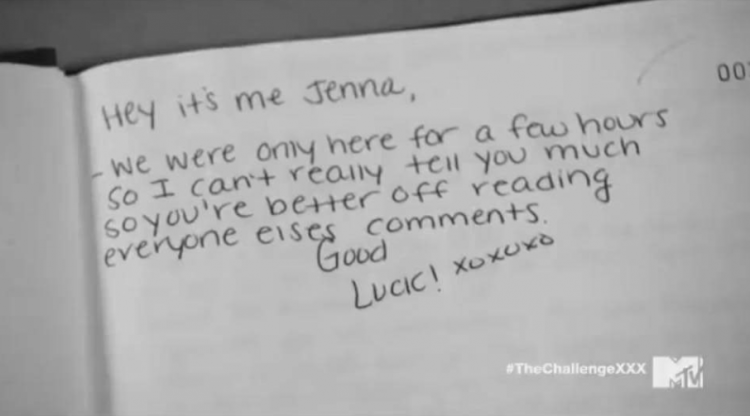 Hey it's me Jenna,
00
- We were only here for a few hours
so I can't really tell you much
so you're better off reading
everyone elses comments.
Good
Luck! xoxoxo
#TheChallengeXXX
MTV